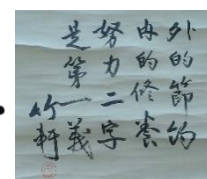 外的節約
内的修養
努力二字
是第一義
竹軒